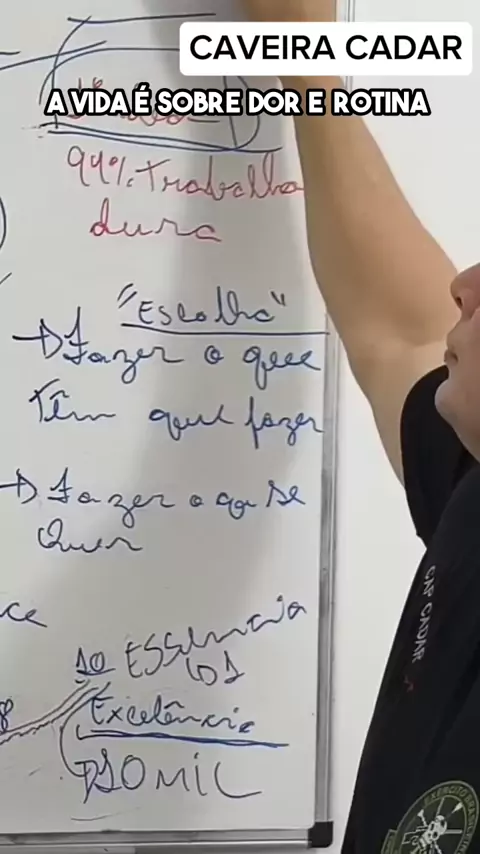 CAVEIRA CADAR
A VIDA É SOBRE DOR E ROTINA
94% Trabalho
dura
"Escolha"
Fazer o que
Têm que fazer
Fazer o que se
Quer
10 ESSENCIA
Excelência
10 MIL
CAP CADAR
EXÉRCITO BRASILEIRO